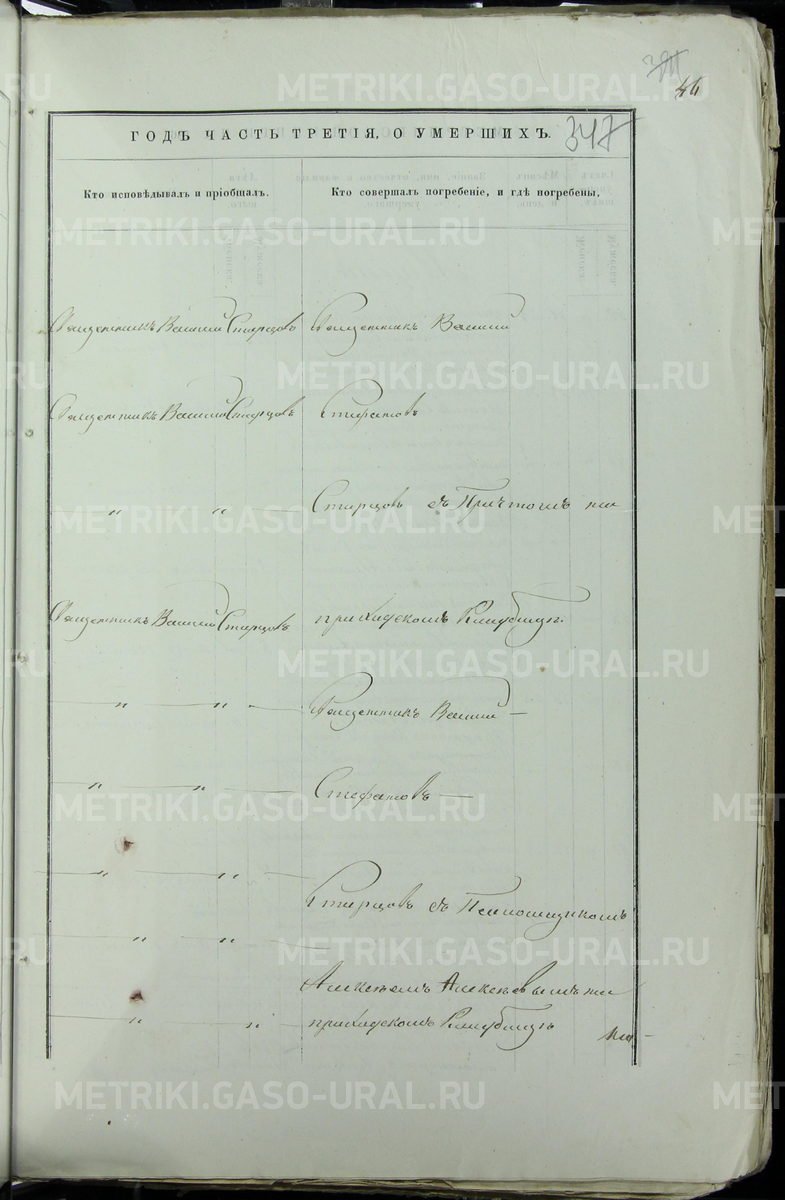 46
347
ГОДЪ ЧАСТЬ ТРЕТІЯ, О УМЕРШИХЪ.
Кто исповѣдывалъ и пріобщалъ.
Кто совершалъ погребеніе, и гдѣ погребены.
Священникъ Василій Старцовъ
Священникъ Василій
Священникъ Василій Старцовъ
Стефановъ
„ „
Старцовъ съ Причтомъ на
Священникъ Василій Старцовъ
приходскомъ Кладбищѣ.
„ „ —
Священникъ Василій —
„ „ —
Стефановъ —
„ „
Старцовъ съ
„ „
Алексѣемъ Алексѣевымъ на
„ „
приходскомъ Кладбищѣ
METRIKI.GASO-URAL.RU